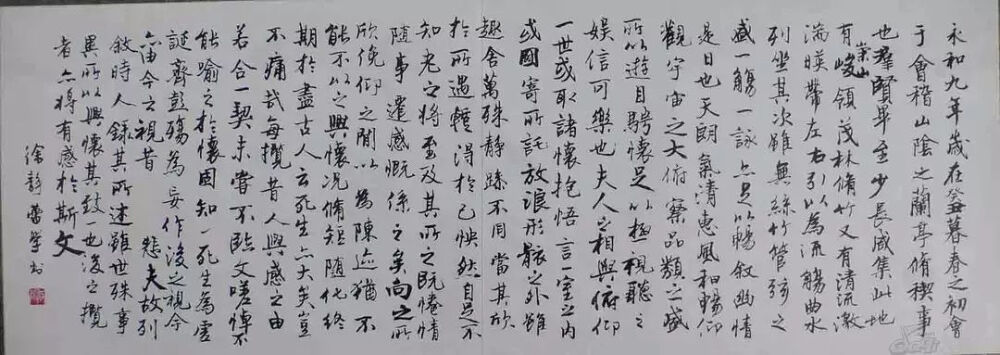 永和九年歲在癸丑暮春之初會
于會稽山陰之蘭亭脩稧事
也羣賢畢至少長咸集此地
有崇山峻領茂林脩竹又有清流激
湍暎帶左右引以為流觴曲水
列坐其次雖無絲竹管弦之
盛一觴一詠亦足以暢敘幽情
是日也天朗氣清惠風和暢仰
觀宇宙之大俯察品類之盛
所以遊目騁懷足以極視聽之
娛信可樂也夫人之相與俯仰
一世或取諸懷抱悟言一室之內
或因寄所託放浪形骸之外雖
趣舍萬殊靜躁不同當其欣
於所遇蹔得於己怏然自足不
知老之將至及其所之既惓情
隨事遷感慨係之矣向之所
欣俛仰之閒以為陳迹猶不
能不以之興懷況脩短隨化終
期於盡古人云死生亦大矣豈
不痛哉每攬昔人興感之由
若合一契未嘗不臨文嗟悼不
能喻之於懷固知一死生為虛
誕齊彭殤為妄作後之視今
亦由今之視昔悲夫故列
敘時人錄其所述雖世殊事
異所以興懷其致一也後之攬
者亦將有感於斯文
徐靜蕾學書